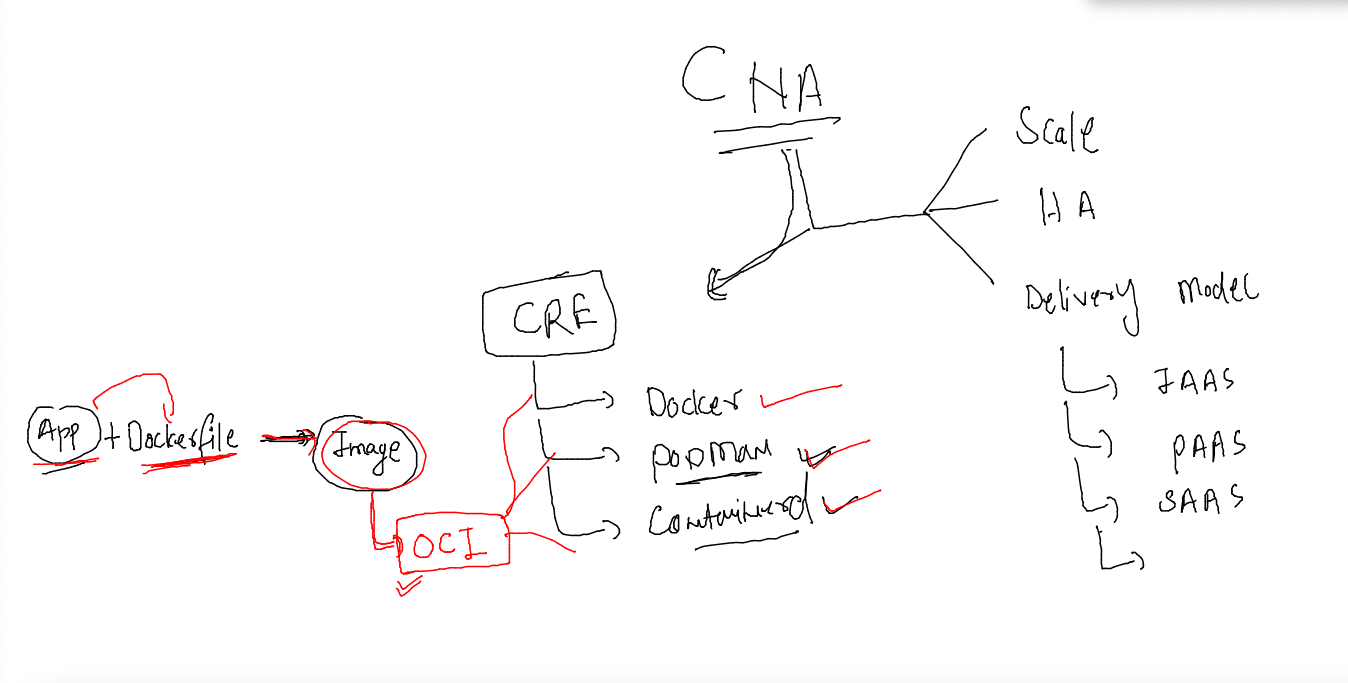 CNA
Scale
HA
Delivery Model
IAAS
PAAS
SAAS
CRE
Docker
PODMAN
Containerd
App + Dockerfile
Image
OCI